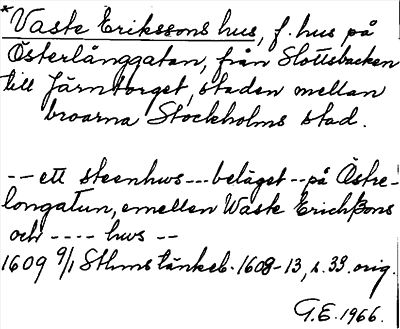 *Vaste Erikssons hus, f. hus på
Österlånggatan, från Slottsbacken
till Järntorget, staden mellan
broarna Stockholms stad.
-- ett steenhws --- beläget -- på Östre-
longatun, emellen Waste Erichßons
och ---- hws --
1609 9/1 Sthms tänkeb. 1608-13, s. 39. orig.
G.E. 1966.